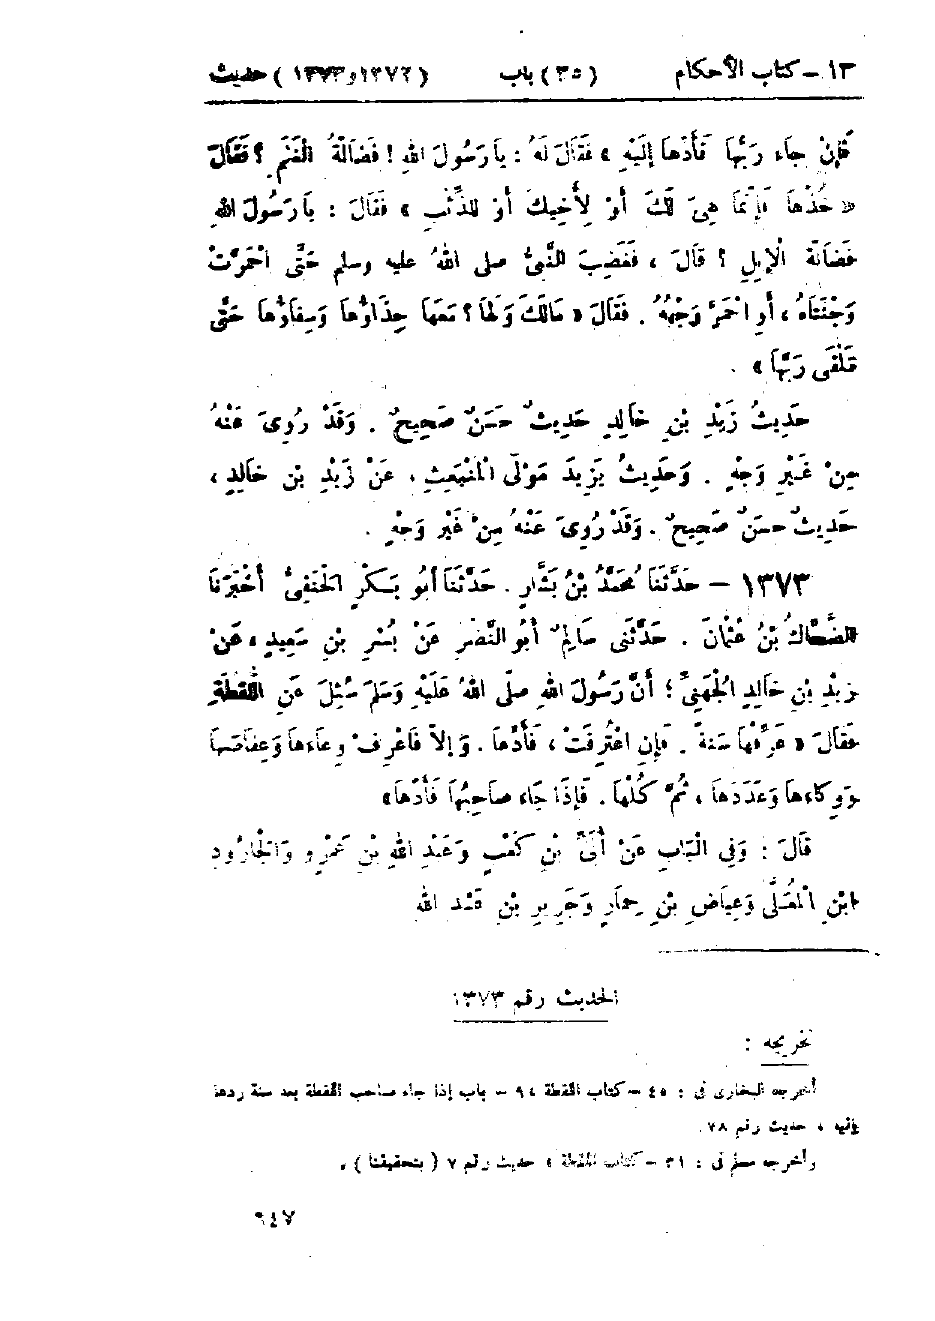 ١٣ - كتاب الأحكام (٣٥) باب (١٣٧٢ و ١٣٧٣) حديث
فَإِنْ جَاءَ رَبُّهَا فَأَدِّهَا إِلَيْهِ » فَقَالَ لَهُ : يَا رَسُولَ اللهِ ! فَضَالَّةُ الْغَنَمِ ؟ فَقَالَ
« خُذْهَا فَإِنَّمَا هِىَ لَكَ أَوْ لِأَخِيكَ أَوْ لِلذِّئْبِ » فَقَالَ : يَا رَسُولَ اللهِ
فَضَالَّةُ الْإِبِلِ ؟ قَالَ ، فَغَضِبَ النَّبِىُّ صلى اللهُ عليه وسلم حَتَّى احْمَرَّتْ
وَجْنَتَاهُ ، أَوِ احْمَرَّ وَجْهُهُ . فَقَالَ « مَالَكَ وَلَهَا ؟ مَعَهَا حِذَاؤُهَا وَسِقَاؤُهَا حَتَّى
تَلْقَى رَبَّهَا » .
حَدِيثُ زَيْدِ بْنِ خَالِدٍ حَدِيثٌ حَسَنٌ صَحِيحٌ . وَقَدْ رُوِىَ عَنْهُ
مِنْ غَيْرِ وَجْهٍ . وَحَدِيثُ يَزِيدَ مَوْلَى الْمُنْبَعِثِ ، عَنْ زَيْدِ بْنِ خَالِدٍ ،
حَدِيثٌ حَسَنٌ صَحِيحٌ . وَقَدْ رُوِىَ عَنْهُ مِنْ غَيْرِ وَجْهٍ .
١٣٧٣ - حَدَّثَنَا مُحَمَّدُ بْنُ بَشَّارٍ . حَدَّثَنَا أَبُو بَكْرٍ الْحَنَفِىُّ أَخْبَرَنَا
الضَّحَّاكُ بْنُ عُثْمَانَ . حَدَّثَنِى سَالِمٌ أَبُو النَّضْرِ عَنْ بُسْرِ بْنِ سَعِيدٍ ، عَنْ
زَيْدِ بْنِ خَالِدٍ الْجُهَنِىِّ ؛ أَنَّ رَسُولَ اللهِ صلى اللهُ عَلَيْهِ وَسَلَّمَ سُئِلَ عَنِ اللُّقَطَةِ
فَقَالَ « عَرِّفْهَا سَنَةً . فَإِنِ اعْتُرِفَتْ ، فَأَدِّهَا . وَإِلاَّ فَاعْرِفْ وِعَاءَهَا وَعِفَاصَهَا
وَوِكَاءَهَا وَعَدَدَهَا ، ثُمَّ كُلْهَا . فَإِذَا جَاءَ صَاحِبُهَا فَأَدِّهَا»
قَالَ : وَفِى الْبَابِ عَنْ أُبَىِّ بْنِ كَعْبٍ وَعَبْدِ اللهِ بْنِ عَمْرٍو وَالْجَارُودِ
ابْنِ الْمُعَلَّى وَعِيَاضِ بْنِ حِمَارٍ وَجَرِيرِ بْنِ عَبْدِ اللهِ
الحديث رقم ١٣٧٣
تخريجه :
أخرجه البخارى فى : ٤٥ - كتاب اللقطة ٩٤ - باب إذا جاء صاحب اللقطة بعد سنة ردها
إليه ، حديث رقم ٧٨.
وأخرجه مسلم فى : ٣١ - كتاب اللقطة ، حديث رقم ٧ ( بتحقيقنا ) .
٦٤٧